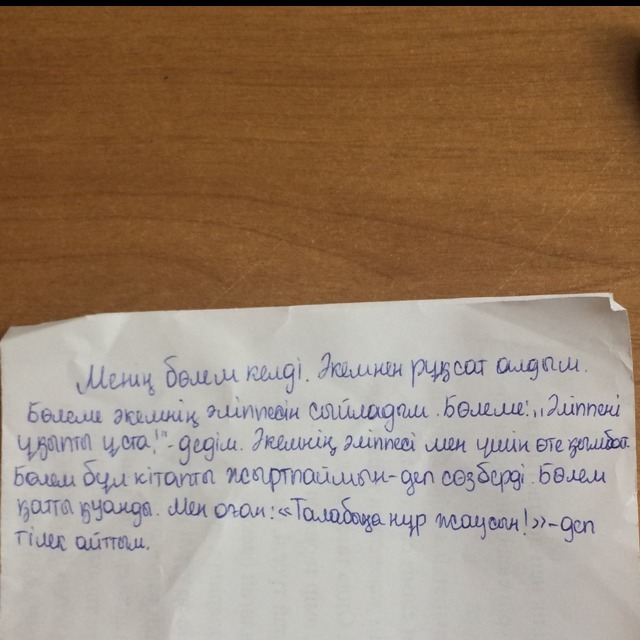 Менің бөлем келді. Әкемнен рұқсат алдым.
Бөлеме әкемнің әліппесін сыйладым. Бөлеме: ,,Әліппені
ұқыпты ұста!"-дедім. Әкемнің әліппесі мен үшін өте қымбат.
Бөлем бұл кітапты жыртпаймын-деп сөз берді. Бөлем
қатты қуанды. Мен оған: «Талабыңа нұр жаусын!»-деп
тілек айттым.